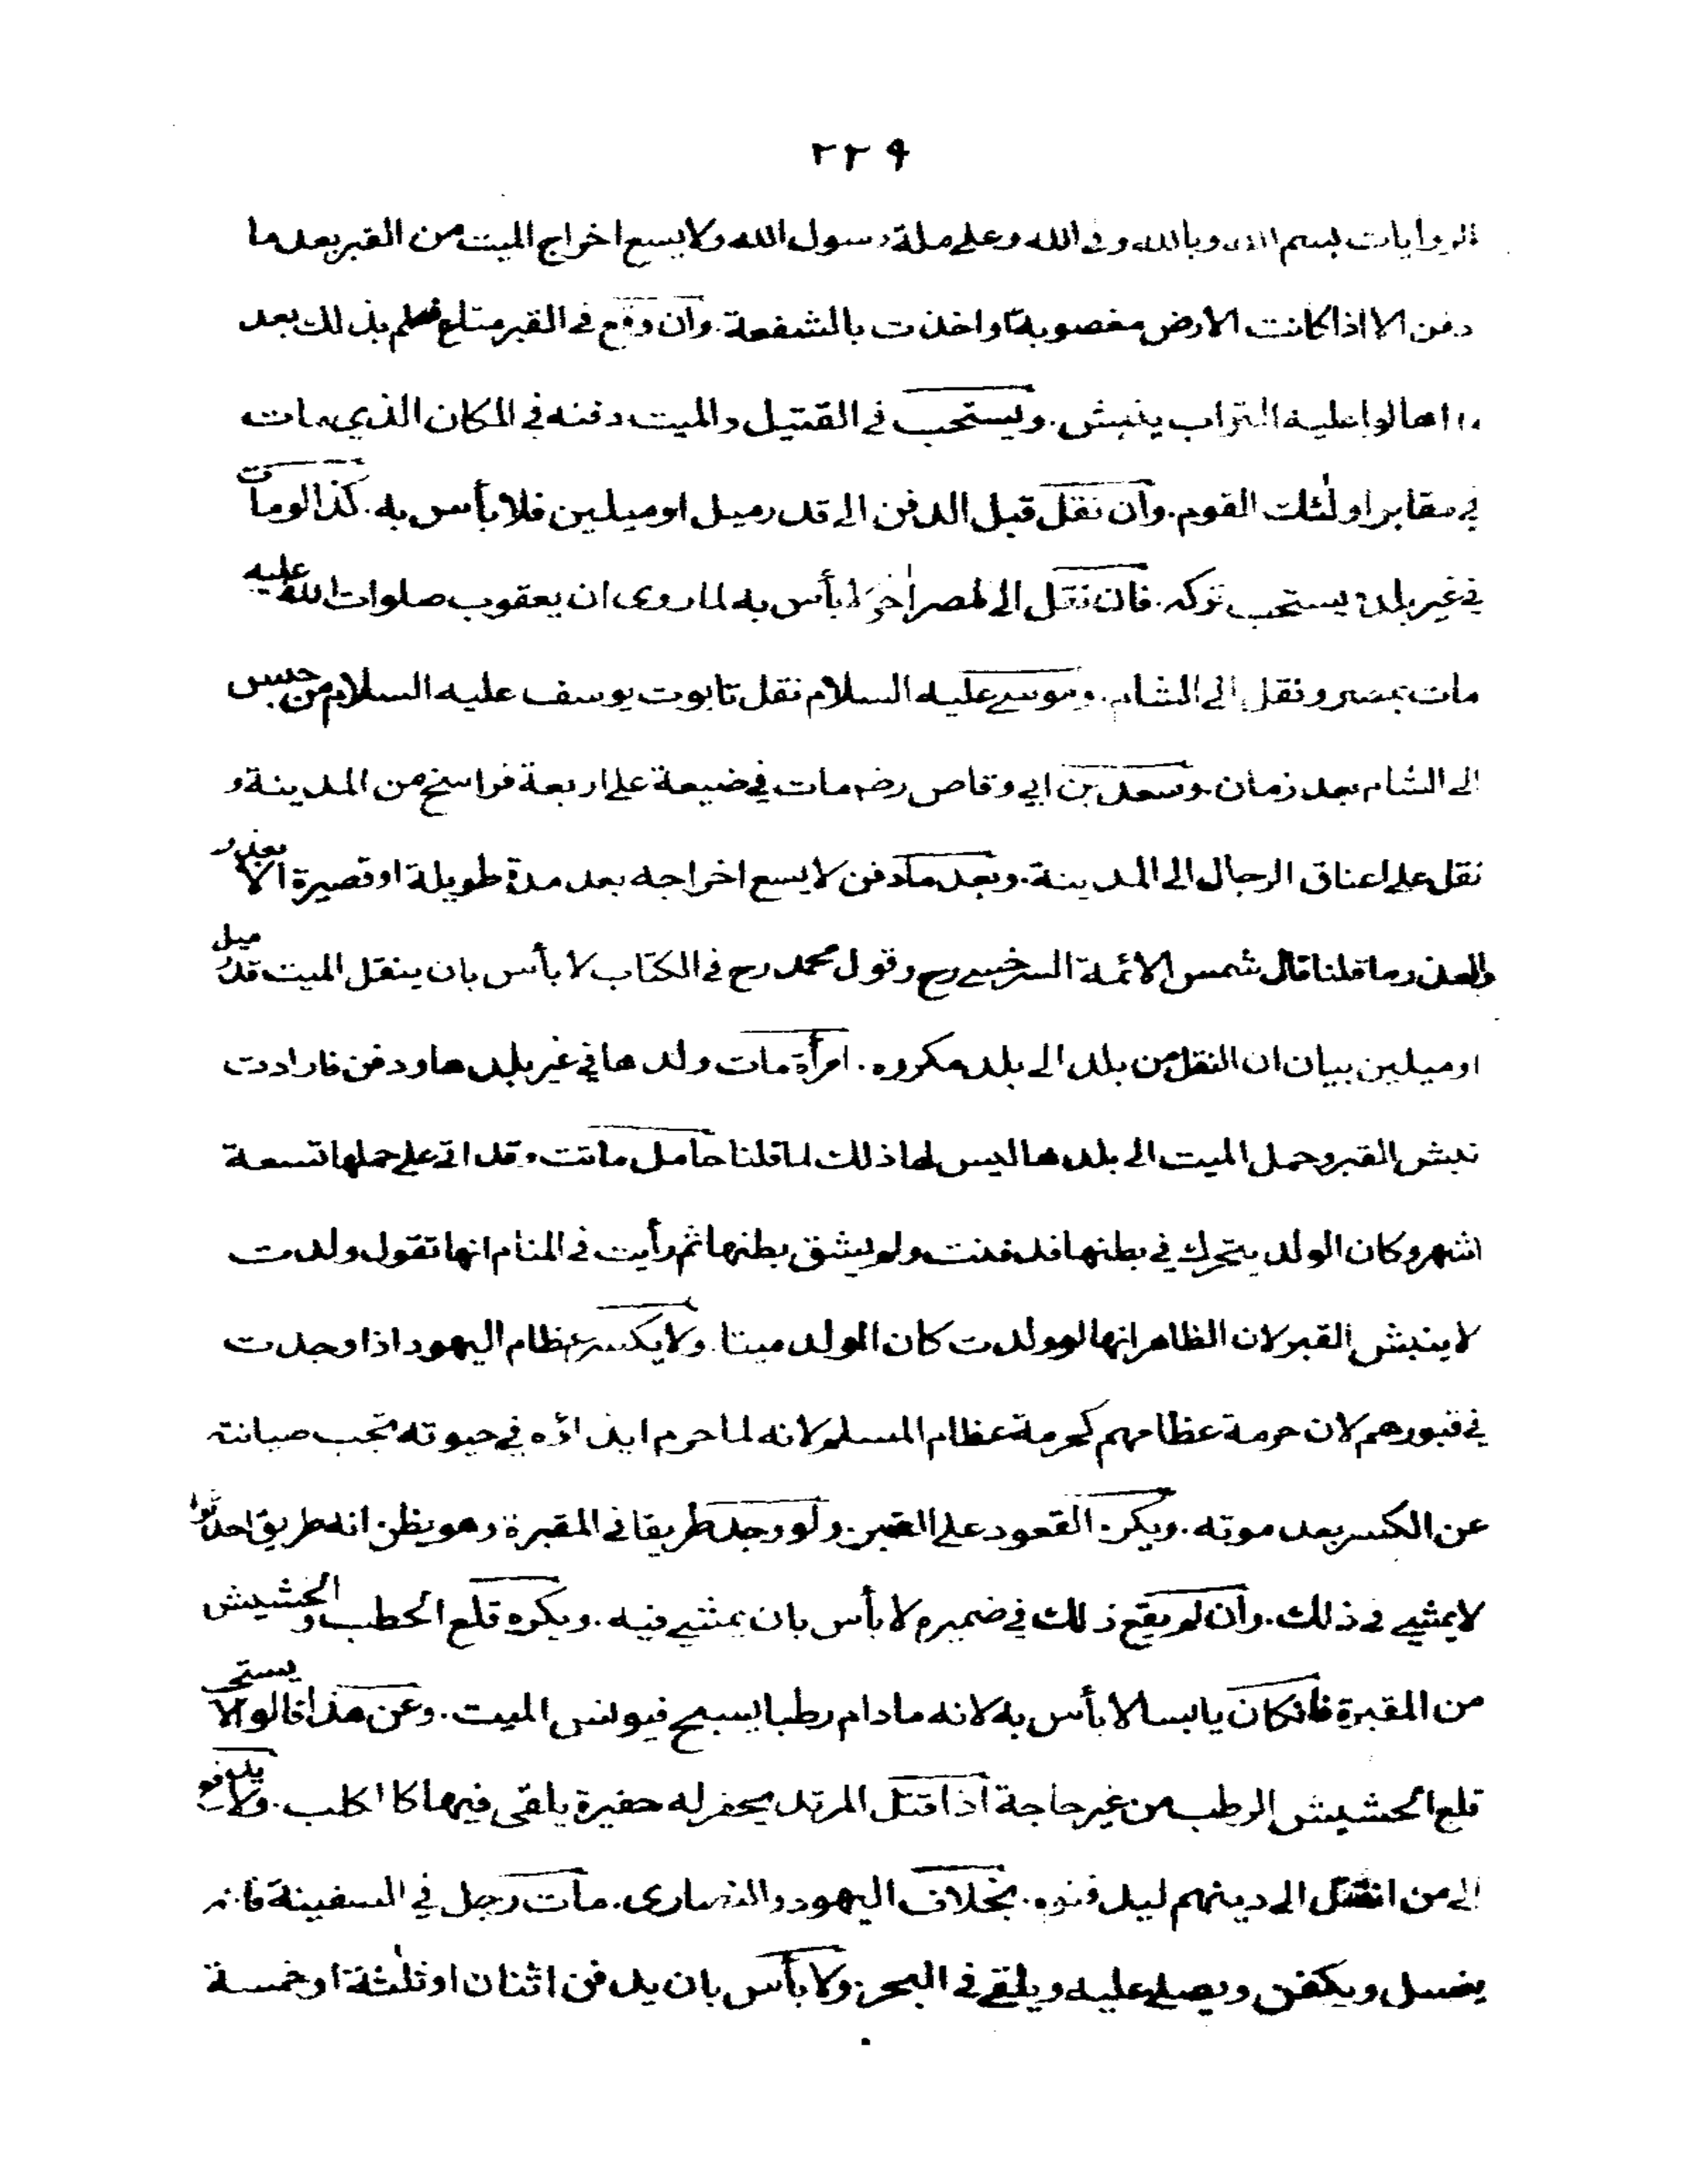 ٢٢٩
الروايات بسم الله وبالله وفى الله وعلى ملة رسول الله ولا يسع اخراج الميت من القبر بعد ما
دفن الا اذا كانت الارض مغصوبة او اخذت بالشفعة وان وقع فى القبر متاع فعلم بذلك بعد
ما اهالوا عليه التراب ينبش. ويستحب فى القتيل والميت دفنه فى المكان الذى مات
فى مقابر اولئك القوم. وان نقل قبل الدفن الى قدر ميل او ميلين فلا بأس به. كذا لو مات
فى غير بلده يستحب تركه. فان نقل الى لمصر اخر لا بأس به لما روى ان يعقوب صلوات الله عليه
مات بمصر ونقل الى الشام. وموسى عليه السلام نقل تابوت يوسف عليه السلام من
الى الشام بعد زمان. وسعد بن ابى وقاص رضه مات فى ضيعة على اربعة فراسخ من المدينة و
نقل على اعناق الرجال الى المدينة. وبعد ما دفن لا يسع اخراجه بعد مدة طويلة او قصيرة الا بعذر
والعذر ما قلنا قال شمس الائمة السرخسى رح وقول محمد رح فى الكتاب لا بأس بان ينقل الميت قدر ميل
او ميلين بيان ان النقل من بلد الى بلد مكروه. امرأة مات ولدها فى غير بلدها ودفن فارادت
نبش القبر وحمل الميت الى بلدها ليس لها ذلك لما قلنا حامل ماتت وقد اتى على حملها تسعة
اشهر وكان الولد يتحرك فى بطنها فدفنت ولم يشق بطنها ثم رأيت فى المنام انها تقول ولدت
لا ينبش القبر لان الظاهر انها لو ولدت كان الولد ميتا. ولا يكسر عظام اليهود اذا وجدت
فى قبورهم لان حرمة عظامهم كحرمة عظام المسلم لانه لما حرم ايذاؤه فى حيوته تجب صيانته
عن الكسر بعد موته. ويكره القعود على القبر. ولو وجد طريقا فى المقبرة وهو يظن انه طريق احدثوا
لا يمشى فى ذلك. وان لم يقع ذلك فى ضميره لا بأس بان يمشى فيه. ويكره قلع الحطب والحشيش
من المقبرة فانكان يابسا لا بأس به لانه ما دام رطبا يسبح فيونس الميت. وعن هذا قالوا لا يستحب
قلع الحشيش الرطب من غير حاجة اذا قتل المرتد يحفر له حفيرة يلقى فيها كالكلب. ولا يدفع
الى من انتقل الى دينهم ليدفنوه. بخلاف اليهود والنصارى. مات رجل فى السفينة فانه
يغسل ويكفن ويصلى عليه ويلقى فى البحر. ولا بأس بان يدفن اثنان او ثلثة او خمسة